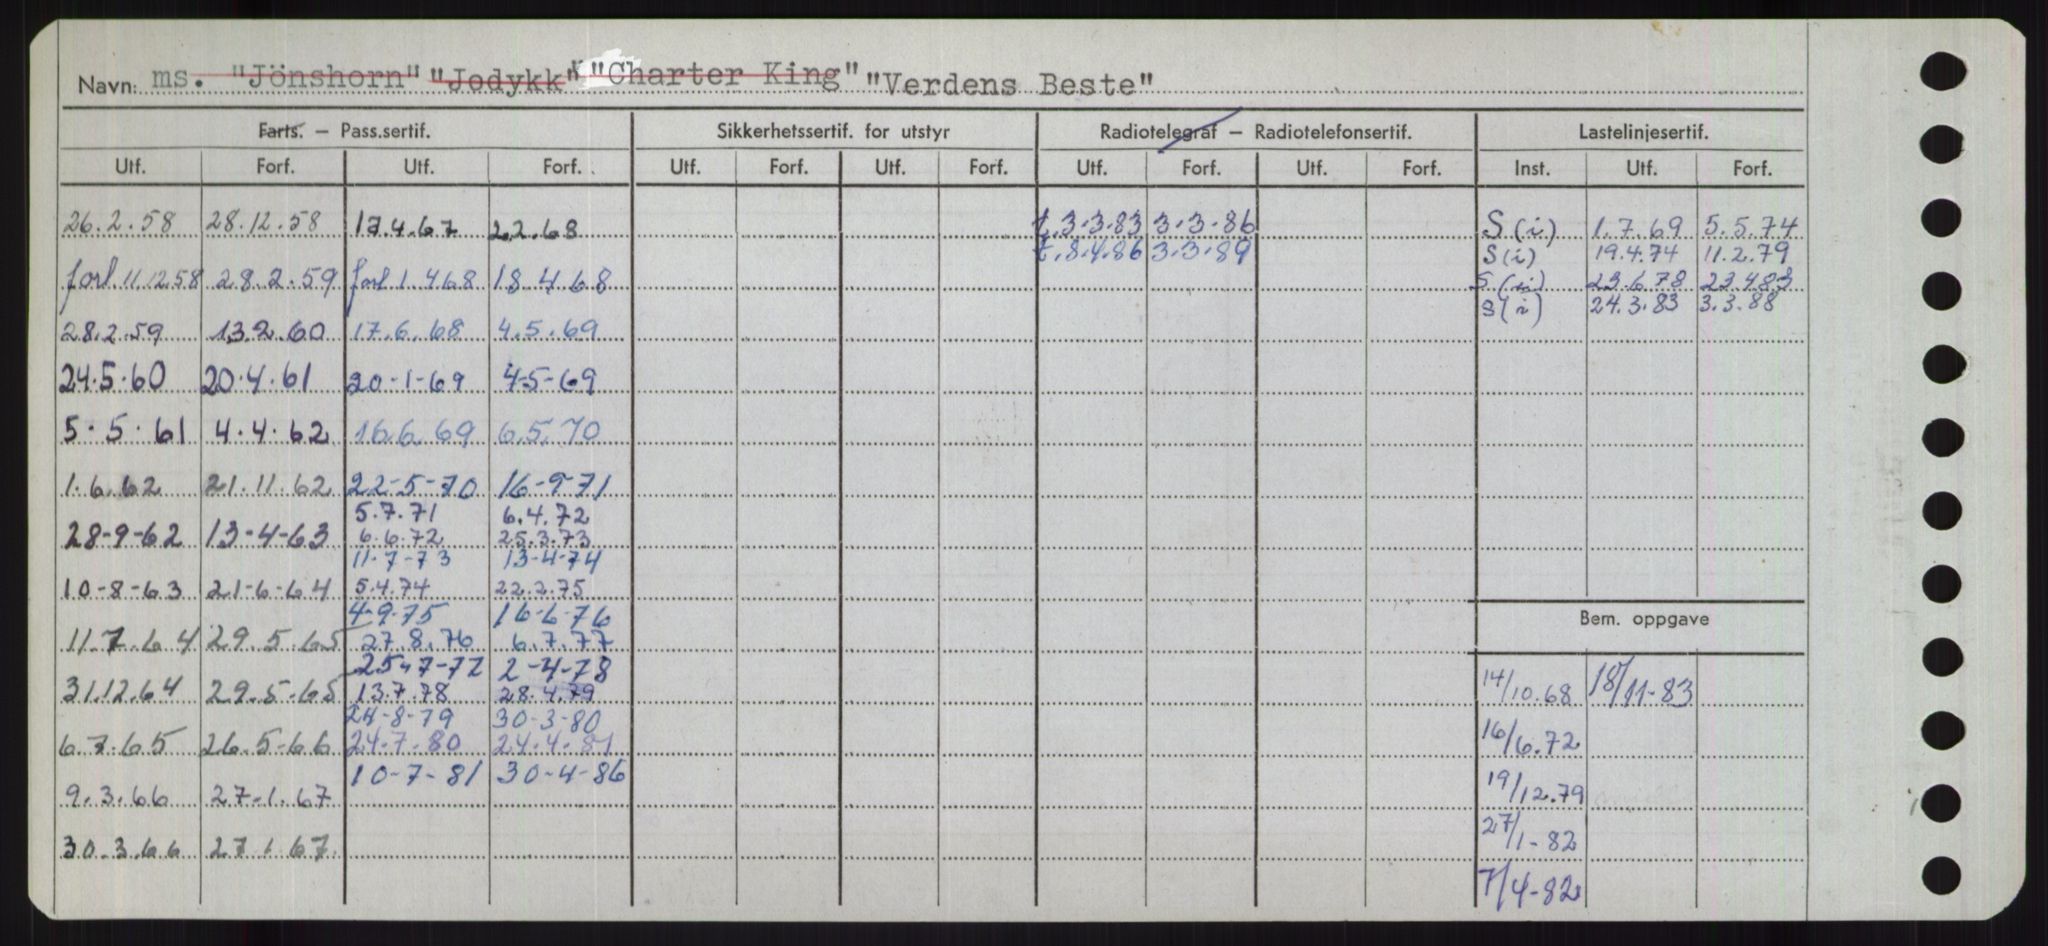 Navn: ms. "Jönshorn" "Jodykk" "Charter King" "Verdens Beste"
Farts. – Pass.sertif. Sikkerhetssertif. for utstyr Radiotelegraf – Radiotelefonsertif. Lastelinjesertif.
Utf. Forf. Utf. Forf. Utf. Forf. Utf. Forf. Utf. Forf. Utf. Forf. Inst. Utf. Forf.
26.2.58 28.12.58 17.4.67 2.2.68 t.3.3.83 3.3.86 S(i) 1.7.69 5.5.74
t.8.4.86 3.3.89 S(i) 19.4.74 11.2.79
forl.11.12.58 28.2.59 forl 1.4.68 18.4.68 S(i) 23.6.78 23.4.83
S(i) 24.3.83 3.3.88
28.2.59 13.2.60 17.6.68 4.5.69
24.5.60 20.4.61 20-1-69 4-5-69
5.5.61 4.4.62 16.6.69 6.5.70
1.6.62 21.11.62 22-5-70 16-9-71
5.7.71 6.4.72
28-9-62 13-4-63 6.6.72 25.3.73
11-7-73 13-4-74
10-8-63 21-6-64 5.4.74 22.2.75
4-9-75 16-6-76
11.7.64 29.5.65 27.8.76 6.7.77
25-7-77 2-4-78
31.12.64 29.5.65 13.7.78 28.4.79
24-8-79 30-3-80
6.7.65 26.5-66 24.7.80 24.4.81
10-7-81 30-4-86
9.3.66 27-1.67
30.3.66 27.1.67.
Bem. oppgave
14/10.68 18/11-83
16/6.72
19/12.79
27/1-82
7/4-82